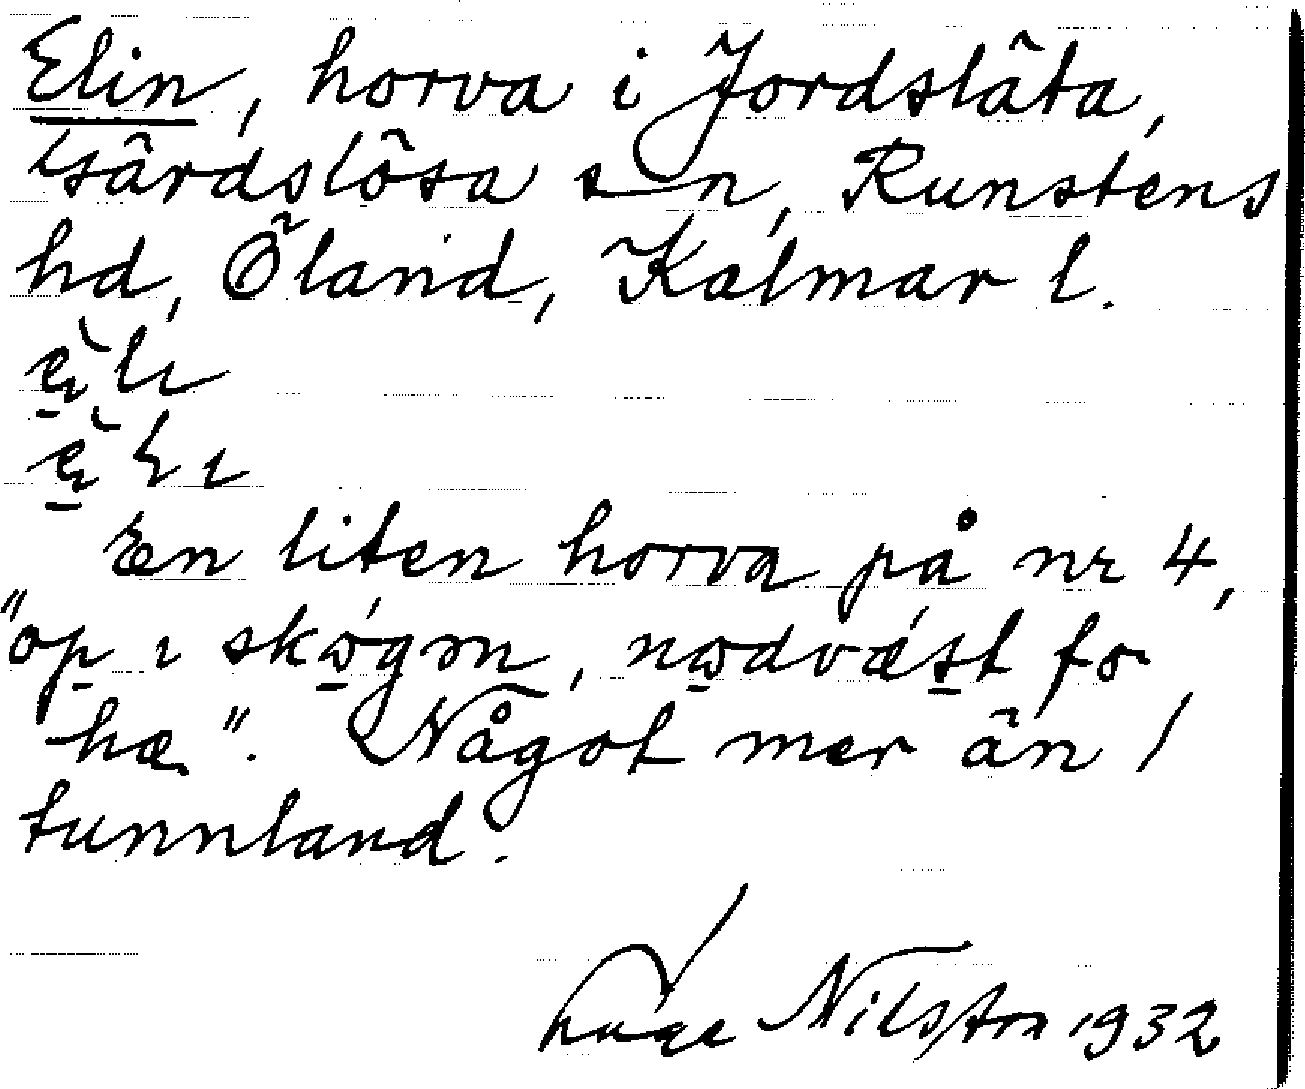 Elin, horva i Jordsläta,
Gärdslösa sn, Runstens
hd, Öland, Kalmar l.
En liten horva på nr 4,
"op ı skogm, nodvæst fo
hæ". Något mer än 1
tunnland.
Nilsson 1932